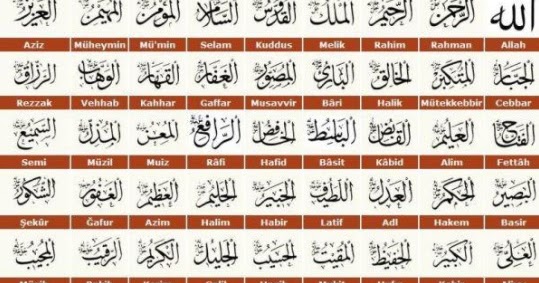 الله الرحمن الرحيم الملك القدوس السلام المؤمن المهيمن العزيز
Aziz Müheymin Mü'min Selam Kuddus Melik Rahim Rahman Allah
الجبار المتكبر الخالق البارئ المصور الغفار القهار الوهاب الرزاق
Rezzak Vehhab Kahhar Gaffar Musavvir Bâri Halik Mütekkebbir Cebbar
الفتاح العليم القابض الباسط الخافض الرافع المعز المذل السميع
Semi Müzil Muiz Râfi Hafid Bâsit Kâbid Alim Fettâh
البصير الحكم العدل اللطيف الخبير الحليم العظيم الغفور الشكور
Şekûr Ğafur Azim Halim Habir Latif Adl Hakem Basir
العلي الكبير الحفيظ المقيت الحسيب الجليل الكريم الرقيب المجيب